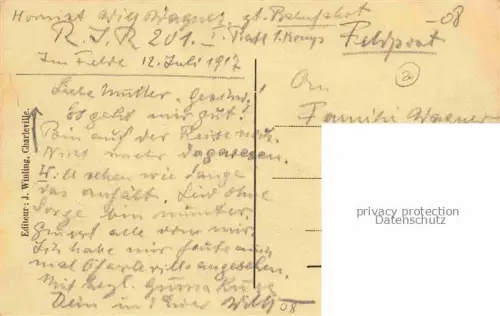 Hornist Willy Wagner, zt. Bahnhof
R.I.R 201.– I. Batl 1. Komp
Feldpost
Im Felde 12. Juli 1917
An
Familie Wagner
Liebe Mutter, Geschw.!
Es geht mir gut!
Bin auf der Reise
Nicht mehr dagewesen.
Will sehen wie lange
das anhält. Sind ohne
Sorge bin munter.
Grüsst alle von mir
Ich habe mir heute auch
mal Charleville angesehen.
Mit herzl. Gruss
Dein in Willy
Editeur: J. Winling, Charleville.
privacy protection
Datenschutz
08
08